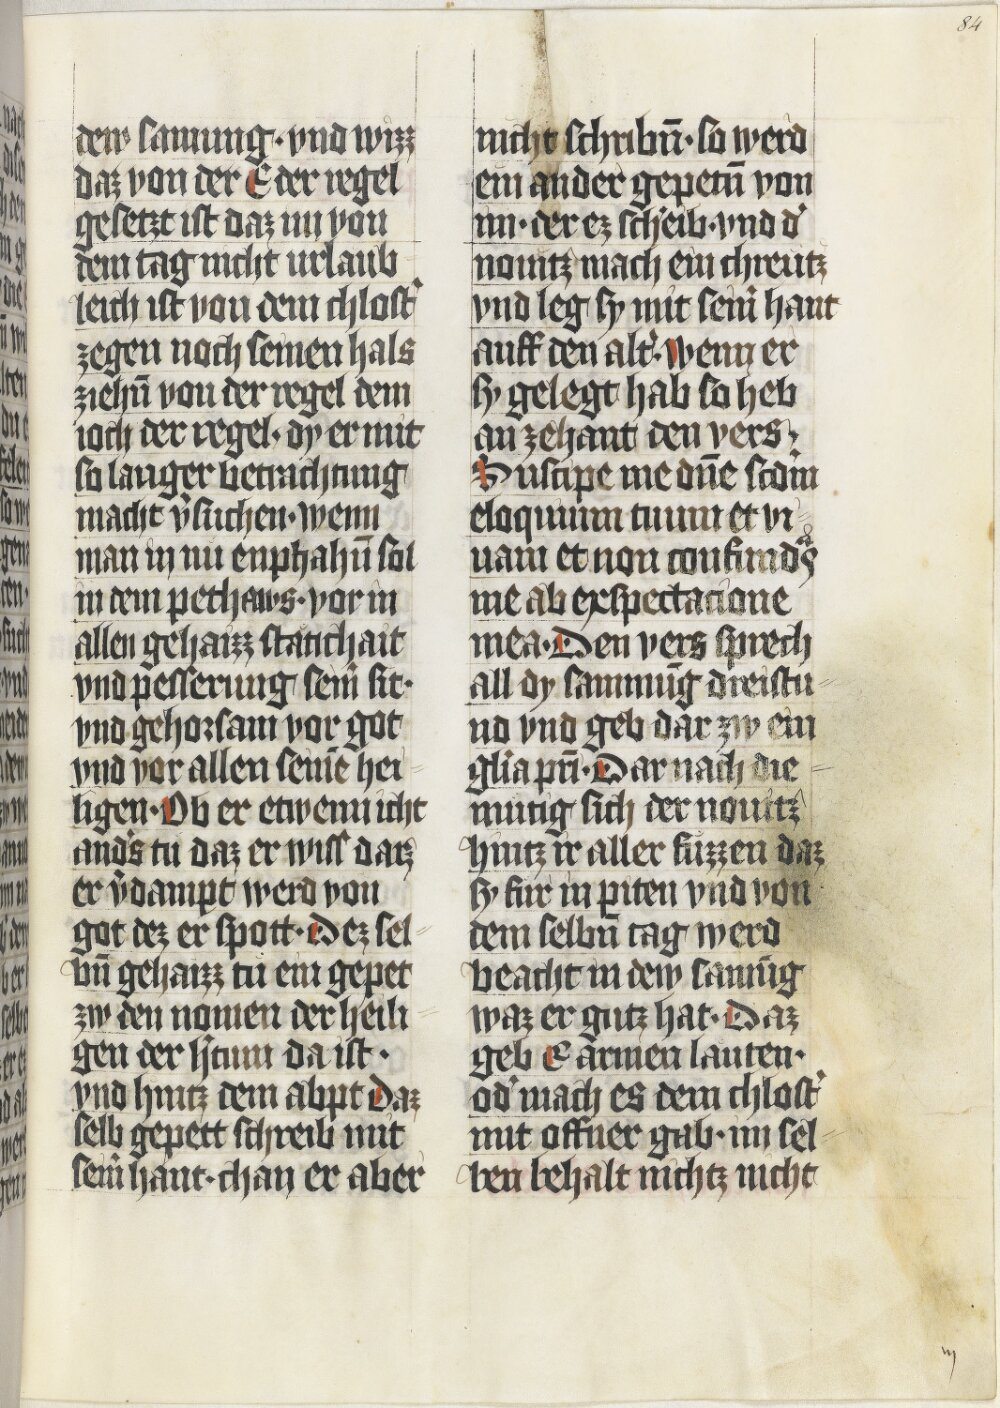 84
dew samung · vnd wizz
daz von der E der regel
gesetzt ist daz im von
dem tag nicht urlaub
leich ist von dem chlost'
zegen noch seinen hals
ziehn̄ von der regel dem
ioch der regel · dy er mit
so langer betrachtung
macht v̓suchen · wenn
man in nu enphahn̄ sol
in dem pethaws · vor in
allen gehaizz statichait
vnd pesserung seīn sit ·
vnd gehorsam vor got
vnd vor allen senīe hei
ligen · Ob er etwenn icht
and's tu daz er wiss' darz
er v̓dampt werd von
got dez er spott · Dez sel
bn̄ gehaizz tu ein gepet
zw den nomen der heili
gen der h̓tum da ist ·
vnd hintz dem abpt Daz
selb gepett schreib mit
seīn hant · chan er aber
nicht schribn̄ · so werd
ein ander gepetn̄ von
im · der ez scheib · vnd d'
nouitz mach ein chreutz
vnd leg sy mit seīn hant
auff den alt' · Wenn er
sy gelegt hab so heb
an zehant den vers ·
Suscipe me dn̄e scdm̄
eloquium tuum et vi
uam et non confundas
me ab exspectacione
mea · Den vers sprech
all dy sammūg dreistu
nd vnd geb dar zw ein
gl'ia pr̄i · Dar nach die
mutig sich der nouitz
hintz ir aller fuzzen daz
sy fur in piten vnd von
dem selbn̄ tag werd
beacht in dew samūg
waz er gutz hat · Daz
geb E armen lauten ·
od' mach es dem chlost'
mit offner gab · im sel
ben behalt nichtz nicht